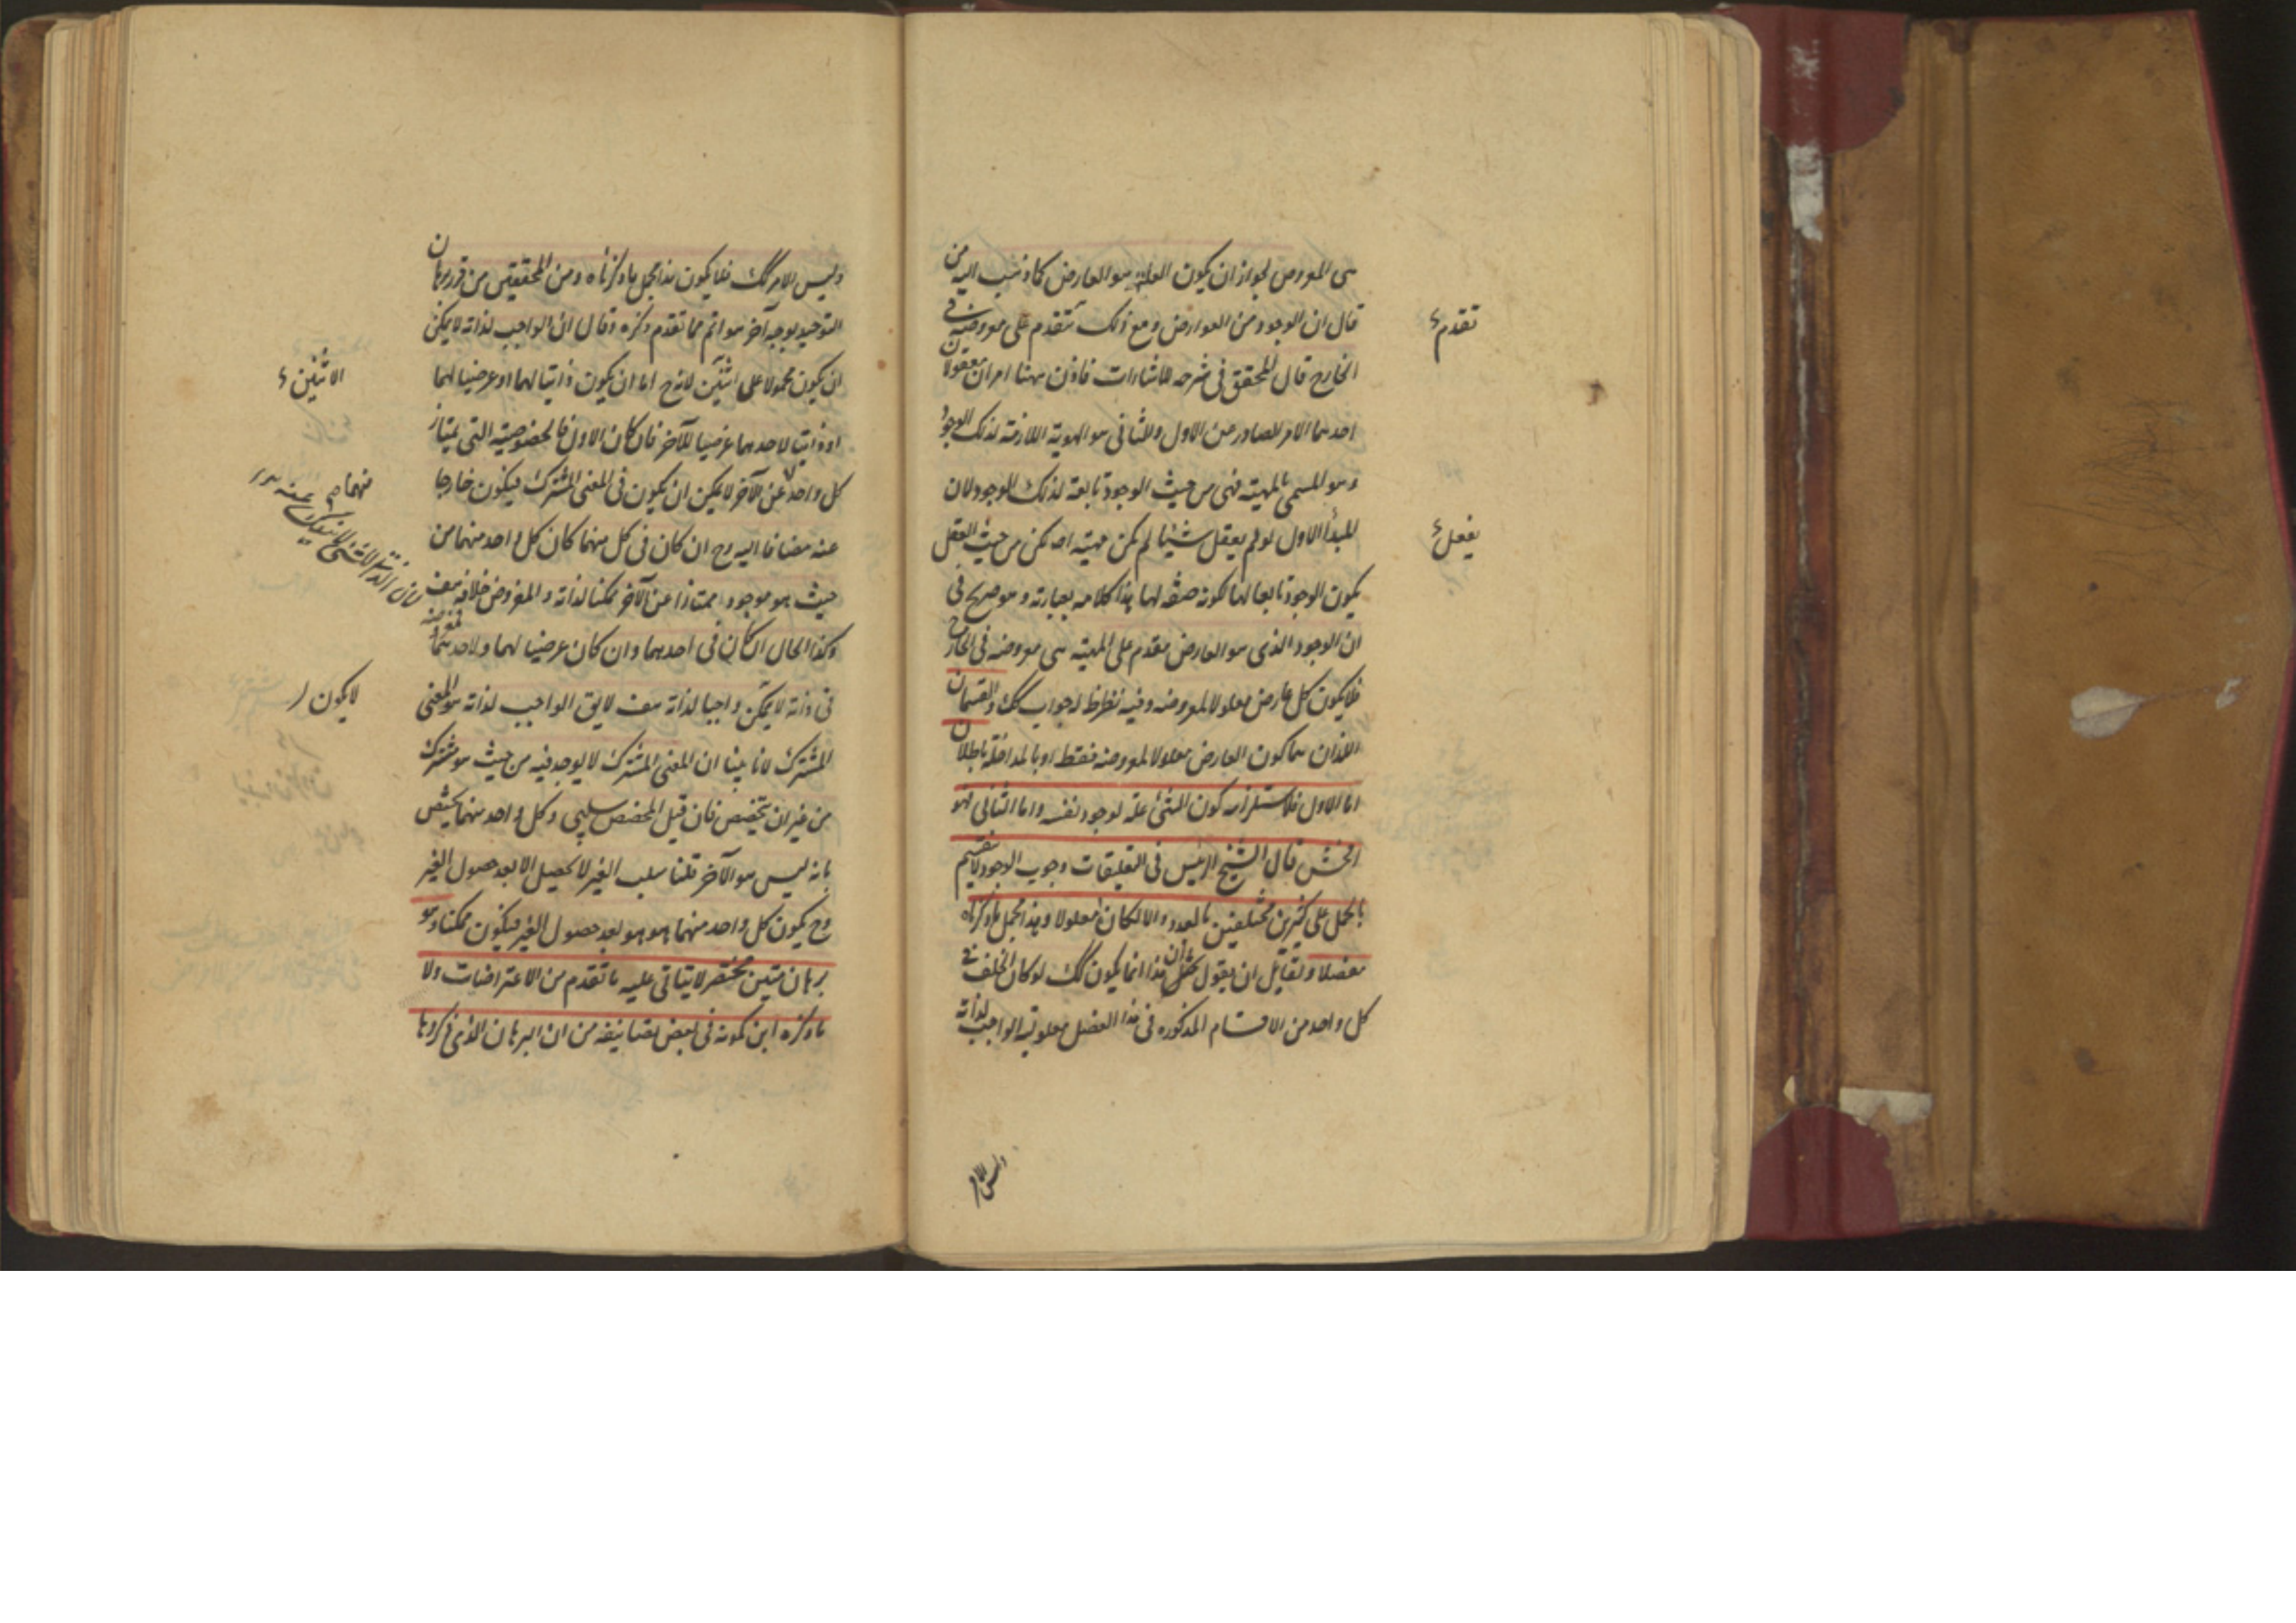 هى المعروض لجواز ان يكون العلة هو العارض كما ذهب اليه من
قال ان الوجود من العوارض ومع ذلك تتقدم على معروضيه فى
تقدم
الخارج قال المحقق فى شرحه للاشارات فاذن ههنا امران معقولان
احدهما الامر الصادر عن الاول والثانى هو الهوية اللازمة لذلك الوجود
وهو المسمى بالمهية فهى من حيث الوجود تابعة لذلك الوجود لان
المبدأ الاول لو لم يعقل شيئا لم تكن مهية اصلا لكن من حيث العقل
يفعل
يكون الوجود تابعا لها لكونه صفة لها هذا كلامه بعبارته وهو صريح فى
ان الوجود الذى هو العارض مقدم على المهية هى معروضه فى الخارج
فلا يكون كل عارض معلولا لمعروضه وفيه نظر لجواب كك والقسمان
اللذان هما كون العارض معلولا لمعروضه فقط او بالمداخلة باطلان
اما الاول فلاستلزامه كون الشئ علة لوجود نفسه واما الثانى فهو
افحش قال الشيخ الرئيس فى التعليقات وجوب الوجود لا ينقسم
بالحمل على كثيرين مختلفين بالعدد والا لكان معلولا وهذا مجمل ما ذكرناه
مفصلا ولقائل ان يقول ان هذا انما يكون كك لو كان الخلف فى
كل واحد من الاقسام المذكوره فى هذا الفصل معلولية الواجب لذاته
وليس الامر
وليس الامر كك فلا يكون هذا مجمل ما ذكرناه ومن المحققين من قرر برهان
التوحيد بوجه آخر هو اتم مما تقدم ذكره وقال ان الواجب لذاته لا يمكن
ان يكون محمولا على اثنين لانه ح اما ان يكون ذاتيا لهما او عرضيا لهما
الاثنين
او ذاتيا لاحدهما عرضيا للآخر فان كان الاول فالخصوصية التى يمتاز
كل واحد عن الآخر لا يمكن ان يكون فى المعنى المشترك فيكون خارجا
منهما
عنه مضافا اليه وح ان كان فى كل منهما كان كل واحد منهما من
حيث هو موجود ممتازا عن الآخر ممكنا لذاته والمفروض خلافه هف
وكذا الحال ان كان فى احدهما وان كان عرضيا لهما ولاحدهما فمعروضه
فى ذاته لا يمكن واجبا لذاته هف لا يق الواجب لذاته هو المعنى
لا يكون
المشترك لانا بينا ان المعنى المشترك لا يوجد فيه من حيث هو مشترك
من غير ان يتخصص فان قيل المخصص سلبى وكل واحد منهما يختص
بانه ليس هو الآخر قلنا سلب الغير لا يحصل الا بعد حصول الغير
وح يكون كل واحد منهما هو هو بعد حصول الغير فيكون ممكنا وهو
برهان متين مختصر لا يتاتى عليه ما تقدم من الاعتراضات ولا
ما ذكره ابن كمونه فى بعض تصانيفه من ان البرهان الذى ذكروها